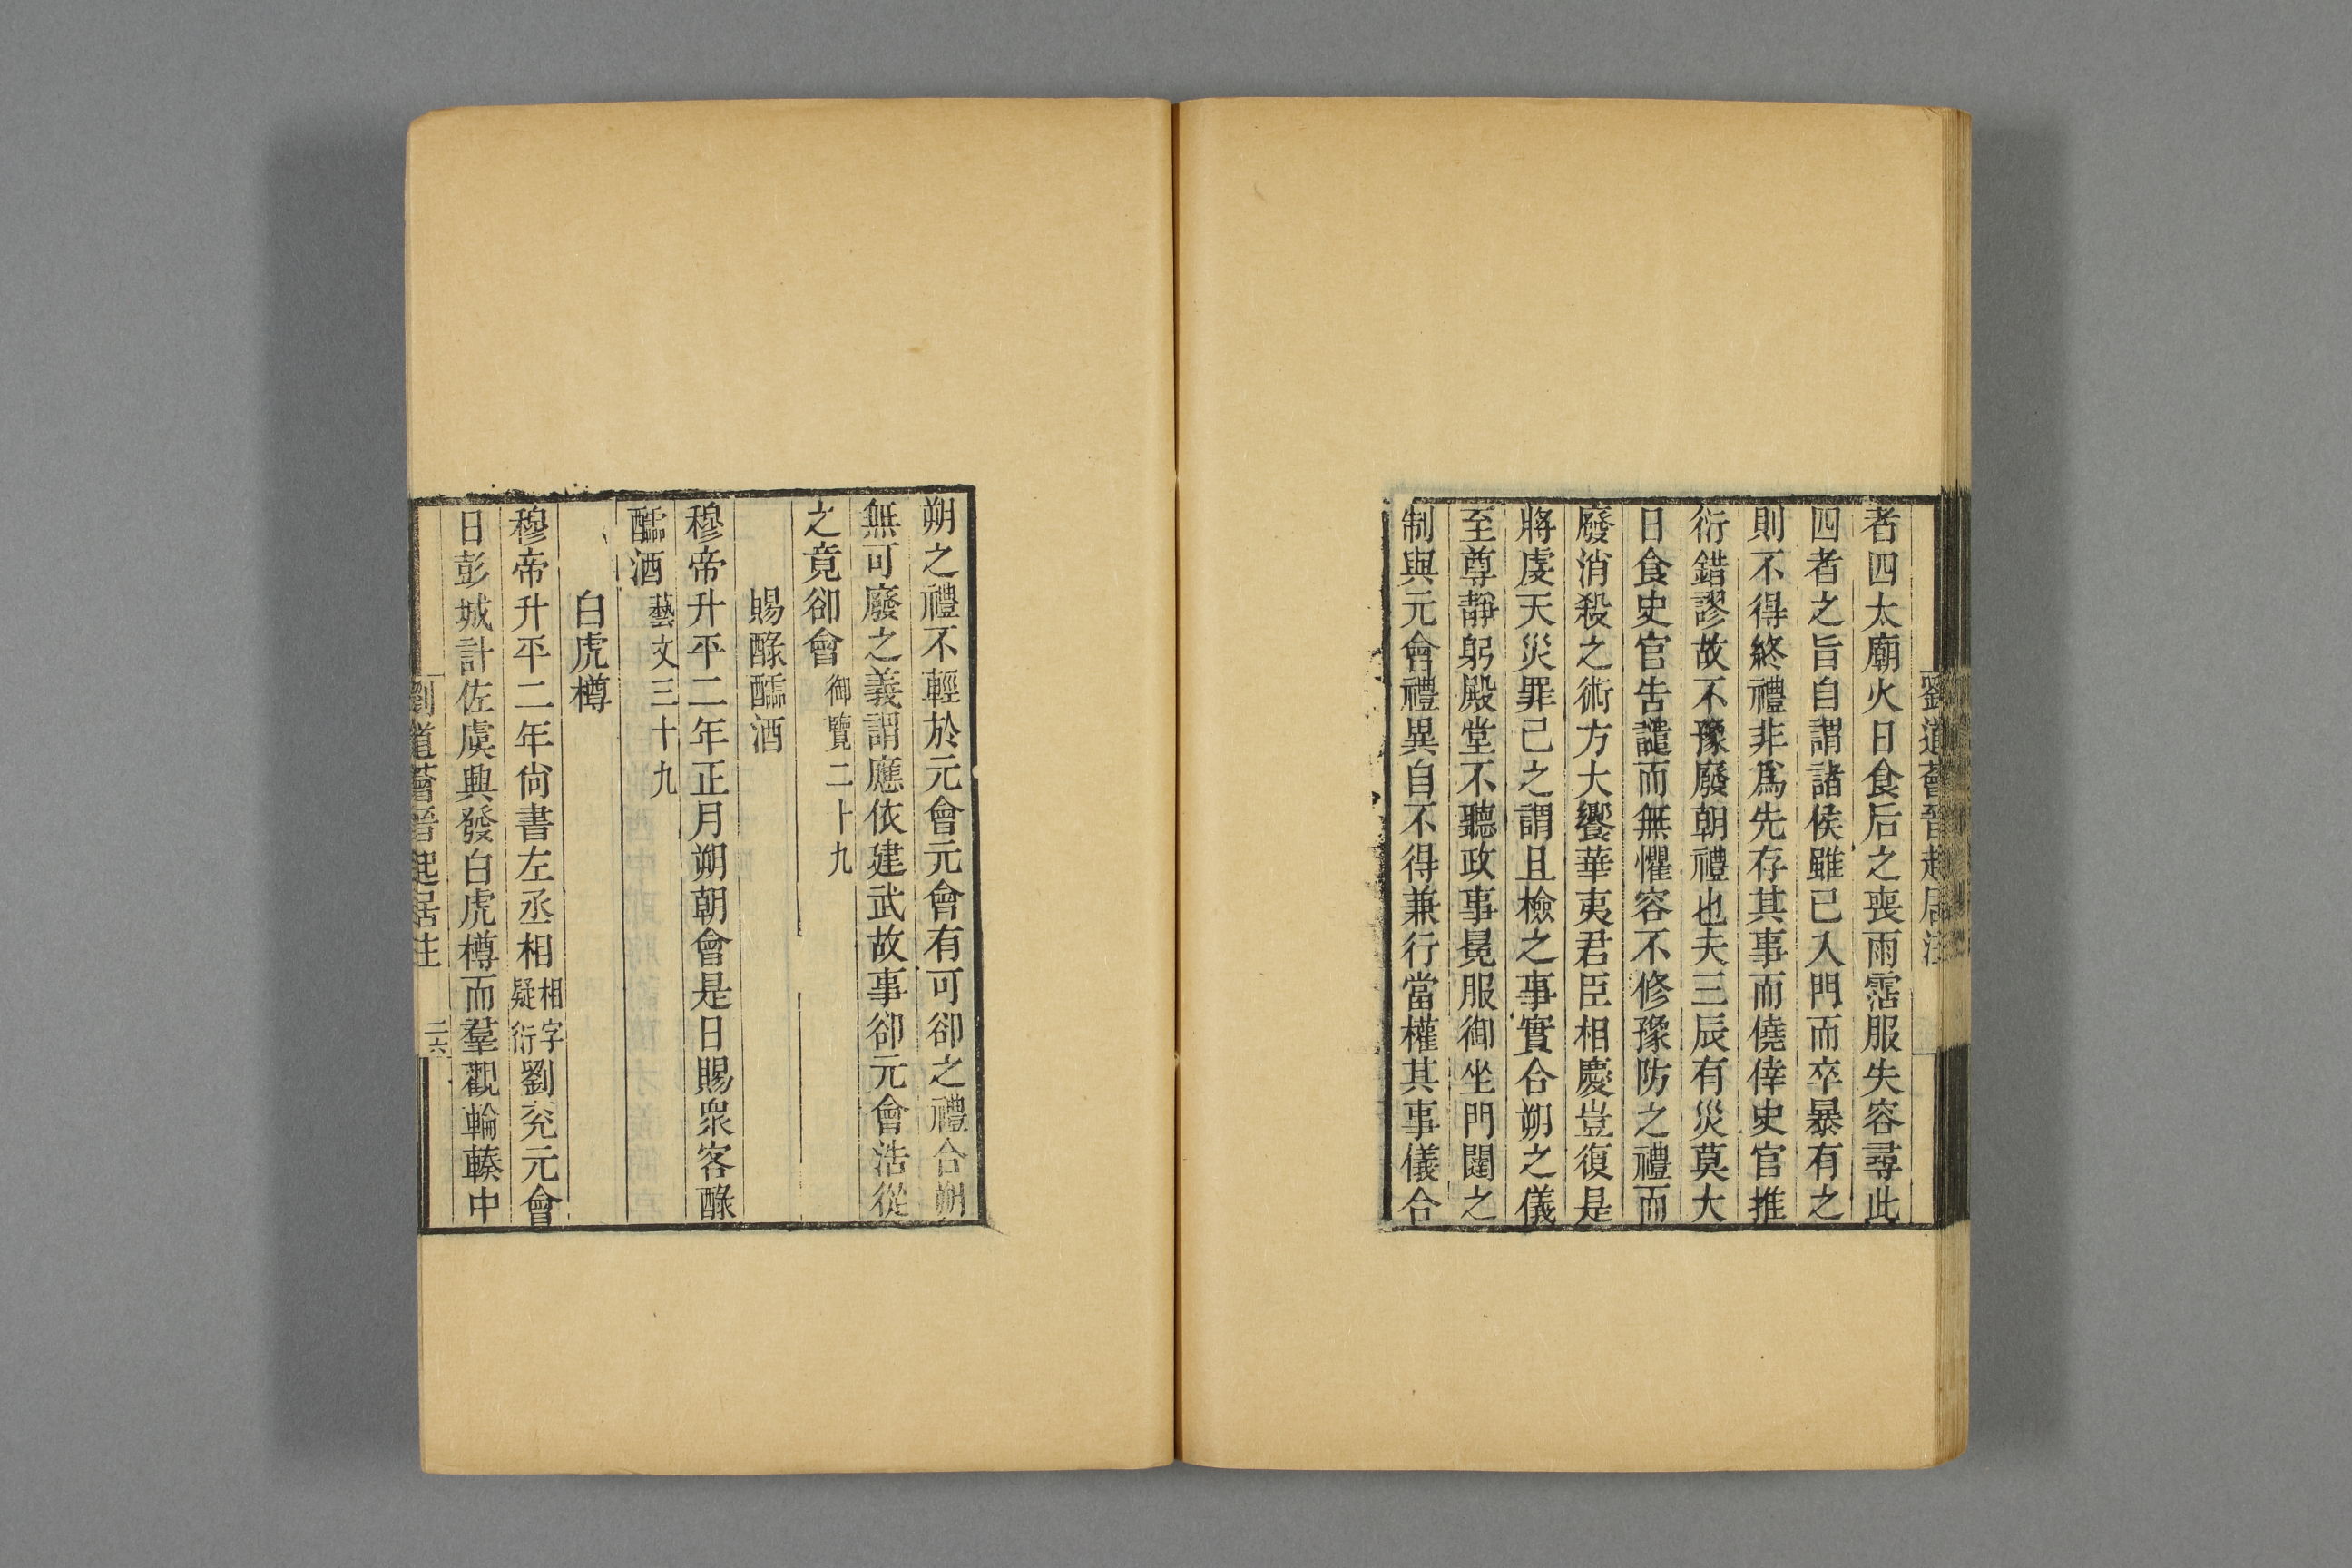 劉道薈晉起居注
者四太廟火日食后之喪雨霑服失容尋此
四者之旨自謂諸侯雖已入門而卒暴有之
則不得終禮非爲先存其事而僥倖史官推
衍錯謬故不豫廢朝禮也夫三辰有災莫大
日食史官告譴而無懼容不修豫防之禮而
廢消殺之術方大饗華夷君臣相慶豈復是
將虔天災罪己之謂且檢之事實合朔之儀
至尊靜躬殿堂不聽政事冕服御坐門闥之
制與元會禮異自不得兼行當權其事儀合
朔之禮不輕於元會元會有可卻之禮合朔
無可廢之義謂應依建武故事卻元會浩從
之竟卻會御覽二十九
賜醁醽酒
穆帝升平二年正月朔朝會是日賜衆客醁
醽酒藝文三十九
白虎樽
穆帝升平二年尙書左丞相相字疑衍劉兖元會
日彭城計佐虞興發白虎樽而羣觀輪轃中
劉道薈晉起居注 二六